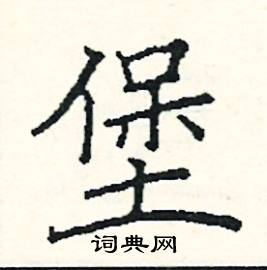 堡
词典网